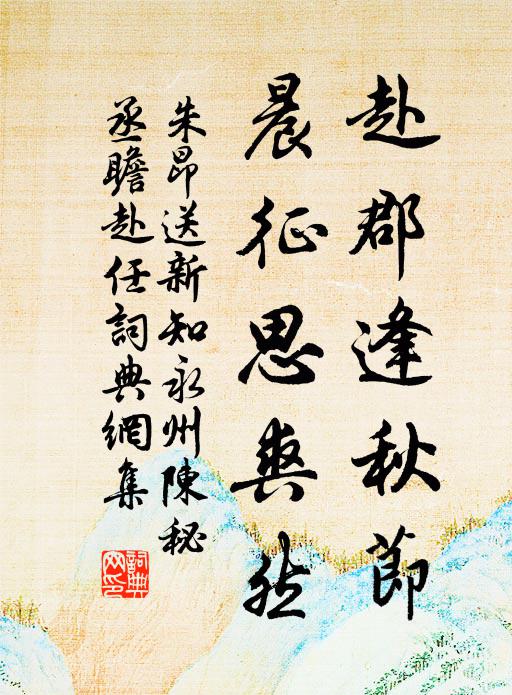 赴郡逢秋節
晨征思爽然
朱昂送新知永州陳秘
丞瞻赴任詞典網集
詞典网印